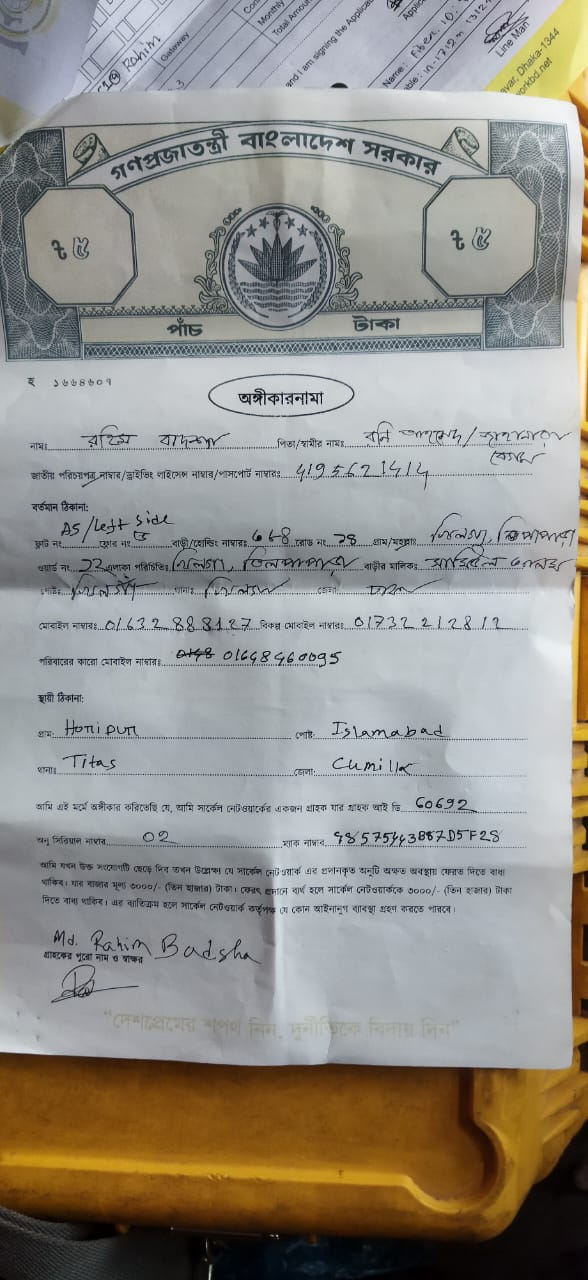 Rahim
Gateway
Monthly
Total Amou
and I am signing the Applica
Name:
Line Man
Dhaka-1344
workbd.net
গণপ্রজাতন্ত্রী বাংলাদেশ সরকার
ট ৫ ট ৫
পাঁচ টাকা
হ ১৬৬৪৬০৭
অঙ্গীকারনামা
নামঃ রহিম বাদশা পিতা/স্বামীর নামঃ
বেগম
জাতীয় পরিচয়পত্র নাম্বার/ড্রাইভিং লাইসেন্স নাম্বার/পাসপোর্ট নাম্বারঃ 4195621414
বর্তমান ঠিকানা:
A5/Left Side
ফ্লাট নং ফ্লোর নং বাড়ী/হোল্ডিং নাম্বারঃ 648 রোড নং গ্রাম/মহল্লাঃ
ওয়ার্ড নং এলাকা পরিচিতিঃ বাড়ীর মালিকঃ
পোষ্টঃ থানাঃ জেলাঃ ঢাকা
মোবাইল নাম্বারঃ 01632888127 বিকল্প মোবাইল নাম্বারঃ 01732212812
পরিবারের কারো মোবাইল নাম্বারঃ 01648460095
স্থায়ী ঠিকানা:
গ্রামঃ Honipur পোষ্ট: Islamabad
থানাঃ Titas জেলা: Cumilla
আমি এই মর্মে অঙ্গীকার করিতেছি যে, আমি সার্কেল নেটওয়ার্কের একজন গ্রাহক যার গ্রাহক আই ডি 60692
অনু সিরিয়াল নাম্বার 02 ম্যাক নাম্বার 98575443887D5F28
আমি যখন উক্ত সংযোগটি ছেড়ে দিব তখন উল্লেখ্য যে সার্কেল নেটওয়ার্ক এর প্রদানকৃত অনুটি অক্ষত অবস্থায় ফেরত দিতে বাধ্য
থাকিব। যার বাজার মূল্য ৩০০০/- (তিন হাজার) টাকা। ফেরৎ প্রদানে ব্যর্থ হলে সার্কেল নেটওয়ার্ককে ৩০০০/- (তিন হাজার) টাকা
দিতে বাধ্য থাকিব। এর ব্যতিক্রম হলে সার্কেল নেটওয়ার্ক কর্তৃপক্ষ যে কোন আইনানুগ ব্যবস্থা গ্রহণ করতে পারবে।
Md. Rahim Badsha
গ্রাহকের পুরো নাম ও স্বাক্ষর
"দেশপ্রেমের শপথ নিন, দুর্নীতিকে বিদায় দিন"